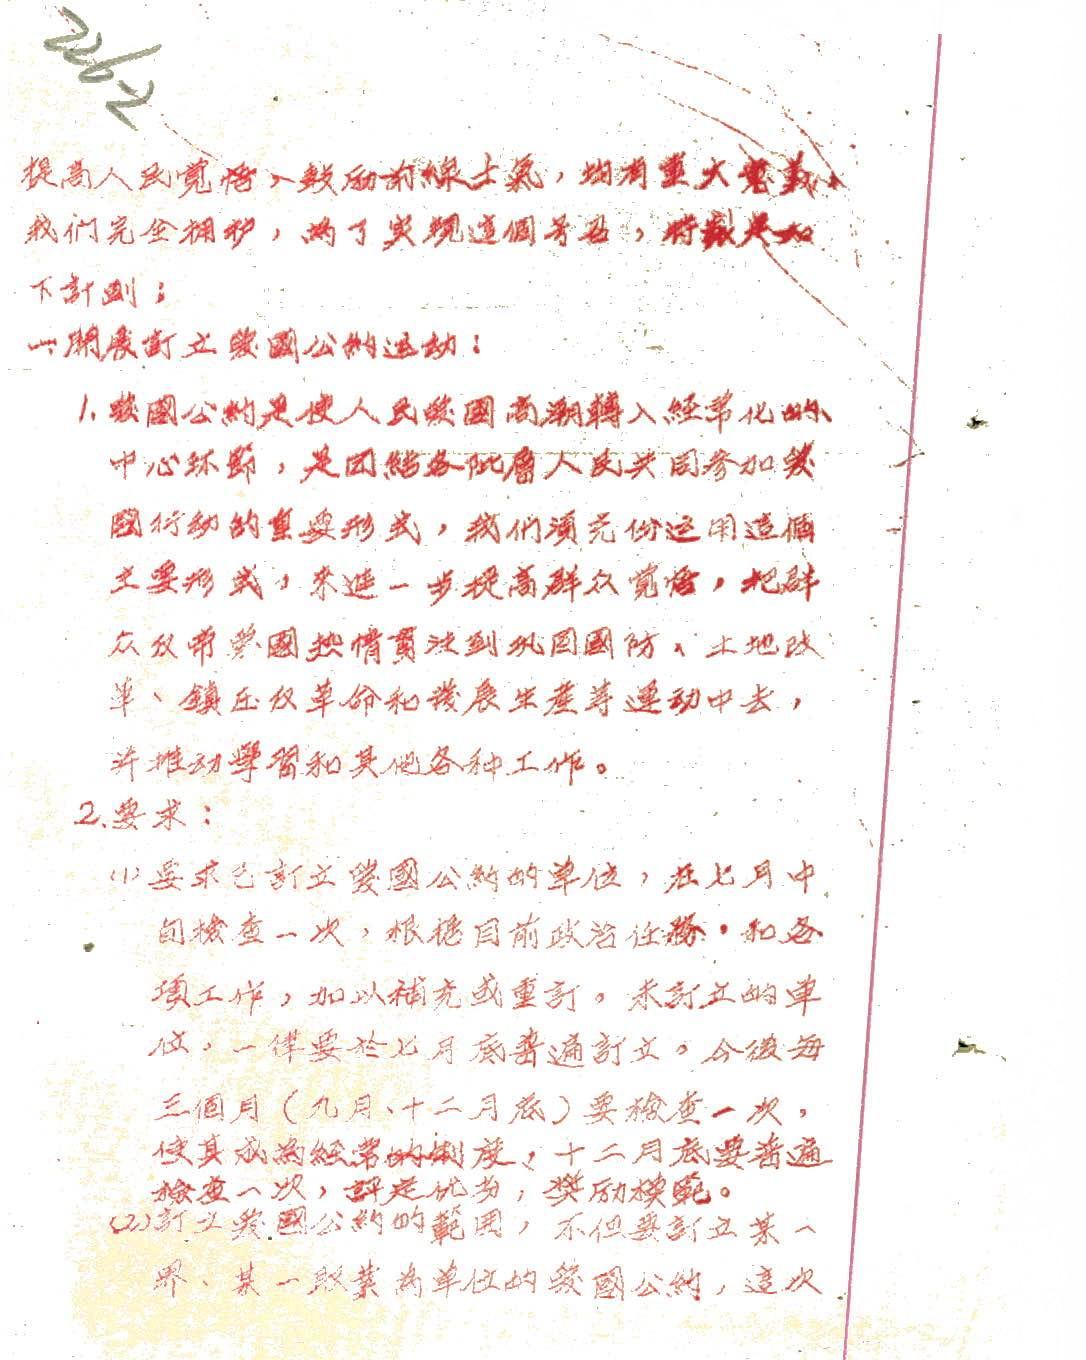 2262
提高人民覚悟、鼓励前線士氣，均有重大意義、
我们完全拥护，為了实現這個号召，特製定如
下計劃：
一、開展訂立愛國公約运动：
1.愛國公約是使人民愛國高潮轉入經常化的
中心环節，是団結各阶層人民共同參加愛
國行动的重要形式，我们須充份运用這個
主要形式，来進一步提高群众覚悟，把群
众反帝愛國热情貫注到巩固國防、土地改
革、鎮压反革命和發展生產等運动中去，
并推动學習和其他各种工作。
2.要求：
(1)要求已訂立愛國公約的单位，在七月中
旬檢查一次，根据目前政治任務，和各
項工作，加以補充或重訂。未訂立的单
位，一律要於七月底普遍訂立。今後每
三個月（九月、十二月底）要檢查一次，
使其成為經常的制度，十二月底要普遍
檢查一次，評定优劣，獎励模範。
(2)訂立愛國公約的範围，不但要訂立某一
界、某一职業為单位的愛國公約，這次